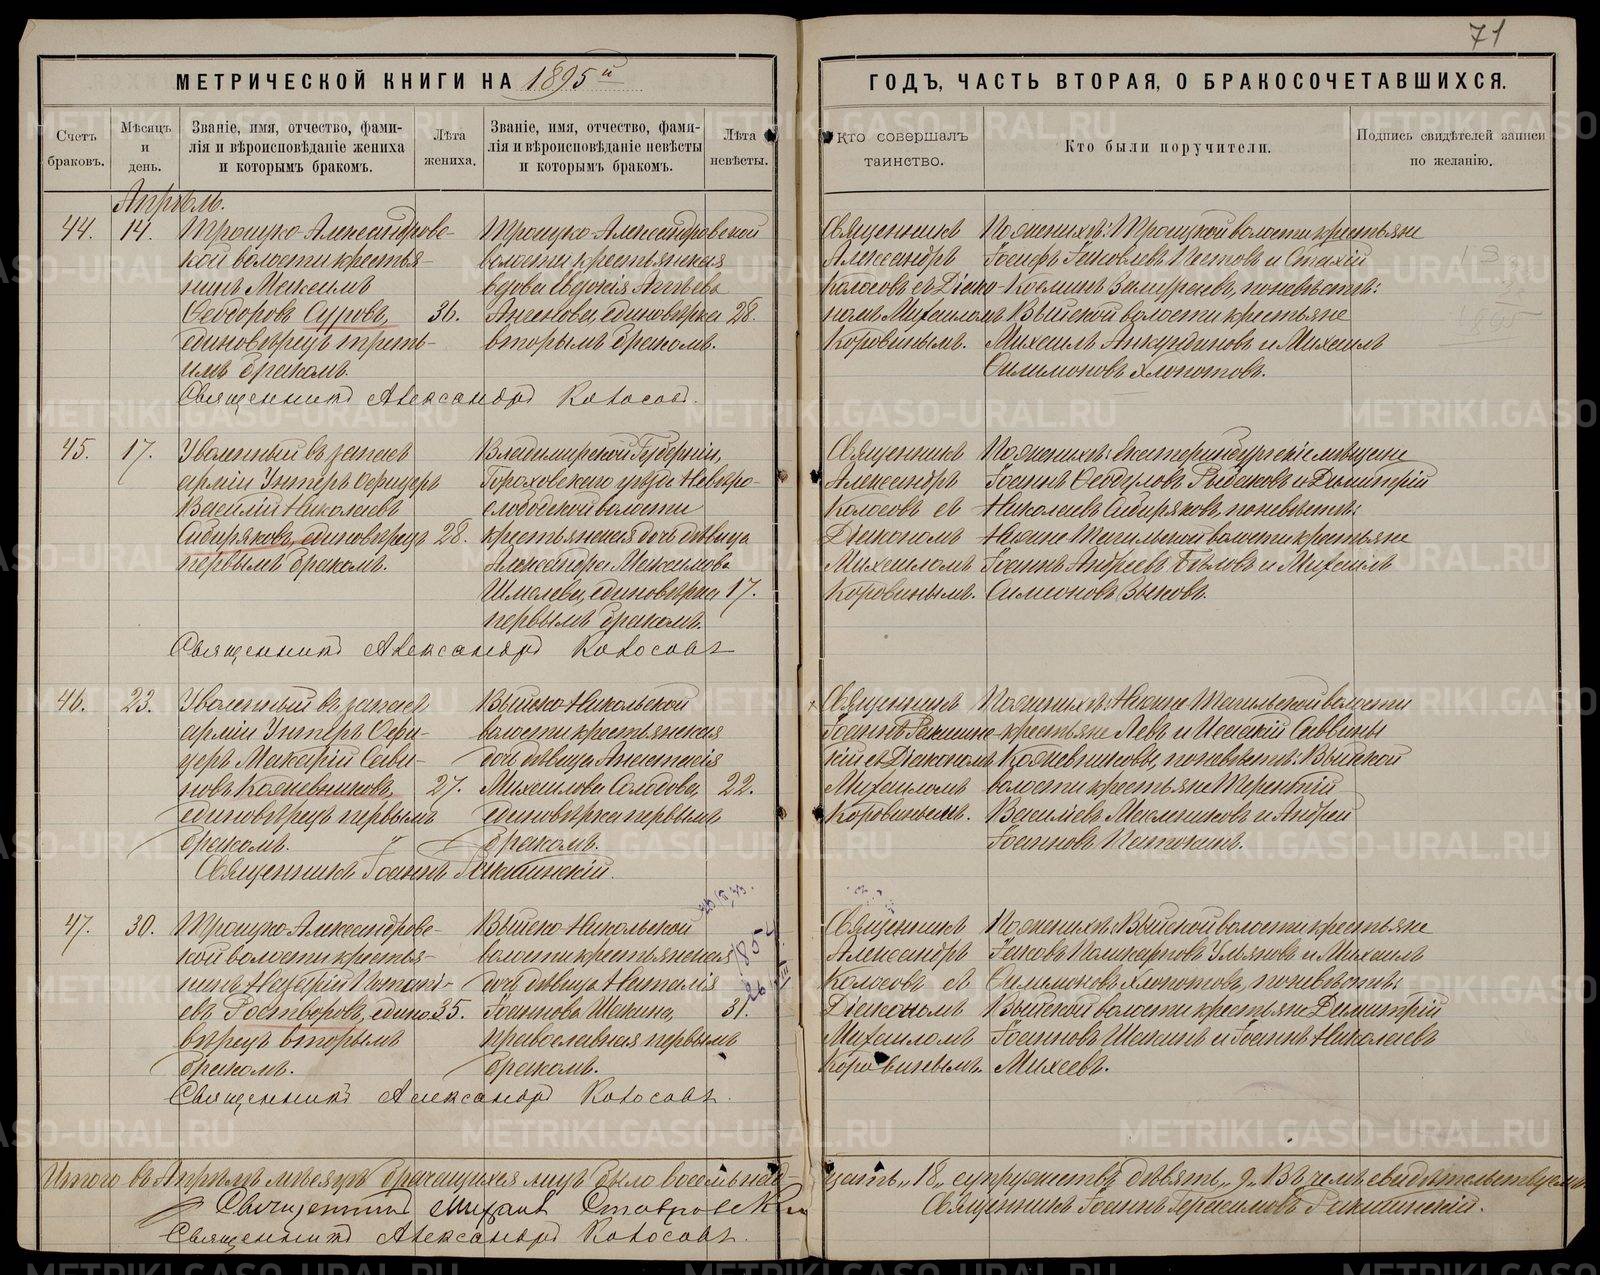 71
МЕТРИЧЕСКОЙ КНИГИ НА 1895й
ГОДЪ, ЧАСТЬ ВТОРАЯ, О БРАКОСОЧЕТАВШИХСЯ.
Счетъ
браковъ.
Мѣсяцъ
и
день.
Званіе, имя, отчество, фами-
лія и вѣроисповѣданіе жениха
и которымъ бракомъ.
Лѣта
жениха.
Званіе, имя, отчество, фами-
лія и вѣроисповѣданіе невѣсты
и которымъ бракомъ.
Лѣта
невѣсты.
Кто совершалъ
таинство.
Кто были поручители.
Подпись свидѣтелей записи
по желанію.
Апрѣль.
44.
14.
Троицко-Александровс-
кой волости крестья-
нинъ Максимъ
Ѳеодоровъ Суровъ,
единовѣрецъ треть-
имъ бракомъ.
36.
Троицко-Александровской
волости крестьянская
вдова Евдокія
единовѣрка
вторымъ бракомъ.
28.
Священникъ
Александръ
Колосовъ съ Діако-
номъ Михаиломъ
Коровинымъ.
По женихѣ: Троицкой волости крестьяне
Іосифъ Іаковлевъ и
Косминъ по невѣстѣ:
Выйской волости крестьяне
Михаилъ и Михаилъ
Филимоновъ Хлопотовъ.
Священникъ Александръ Колосовъ.
45.
17.
Уволенный въ запасъ
арміи Унтеръ Офицеръ
Василій Николаевъ
Сибиряковъ, единовѣрецъ
первымъ бракомъ.
28.
Владимирской Губерніи,
Гороховскаго уѣзда
слободской волости
крестьянская дочь дѣвица
Александра Максимова
Шмелева, единовѣрка
первымъ бракомъ.
17.
Священникъ
Александръ
Колосовъ съ
Діакономъ
Михаиломъ
Коровинымъ.
По женихѣ: Екатеринбургскіе мѣщане
Іоаннъ Ѳеодуловъ Рыбаковъ и Димитрій
Николаевъ Сибиряковъ, по невѣстѣ:
Нижне Тагильской волости крестьяне
Іоаннъ Андреевъ Бѣловъ и Михаилъ
Симеоновъ Зыковъ.
Священникъ Александръ Колосовъ
46.
23.
Уволенный въ запасъ
арміи Унтеръ Офи-
церъ Макарій Сави-
новъ Кожевниковъ,
единовѣрецъ первымъ
бракомъ.
27.
Выйско Никольской
волости крестьянская
дочь дѣвица Анастасія
Михаилова Солодова,
единовѣрка первымъ
бракомъ.
22.
Священникъ
Іоаннъ Рѣкшинс-
кій съ Діакономъ
Михаиломъ
Коровинымъ.
По женихѣ: Нижне Тагильской волости
крестьяне Левъ и Исаакій Саввины
Кожевниковы, по невѣстѣ: Выйской
волости крестьяне Терентій
Васильевъ Масленниковъ и Андрей
Іоанновъ
Священникъ Іоаннъ Рѣкшинскій.
47.
30.
Троицко Александровс-
кой волости крестья-
нинъ Назарій Потапі-
евъ Ростворовъ, едино-
вѣрецъ вторымъ
бракомъ.
35.
Выйско Никольской
волости крестьянская
дочь дѣвица Наталія
Іоаннова Шакина,
православная первымъ
бракомъ.
31.
Священникъ
Александръ
Колосовъ съ
Діакономъ
Михаиломъ
Коровинымъ.
По женихѣ: Выйской волости крестьяне
Іаковъ Поликарповъ Ульяновъ и Михаилъ
Филимоновъ Хлопотовъ, по невѣстѣ:
Выйской волости крестьяне Димитрій
Іоанновъ Шакинъ и Іоаннъ Николаевъ
Михеевъ.
Священникъ Александръ Колосовъ.
Итого въ Апрѣлѣ мѣсяцѣ брачащихся лицъ было восемьнад-
цать „18„ супружествъ девять „9„ Въ чемъ свидѣтельствуемъ:
Священникъ Михаилъ Ставровскій
Священникъ Іоаннъ Герасимовъ Рѣкшинскій.
Священникъ Александръ Колосовъ.
METRIKI.GASO-URAL.RU